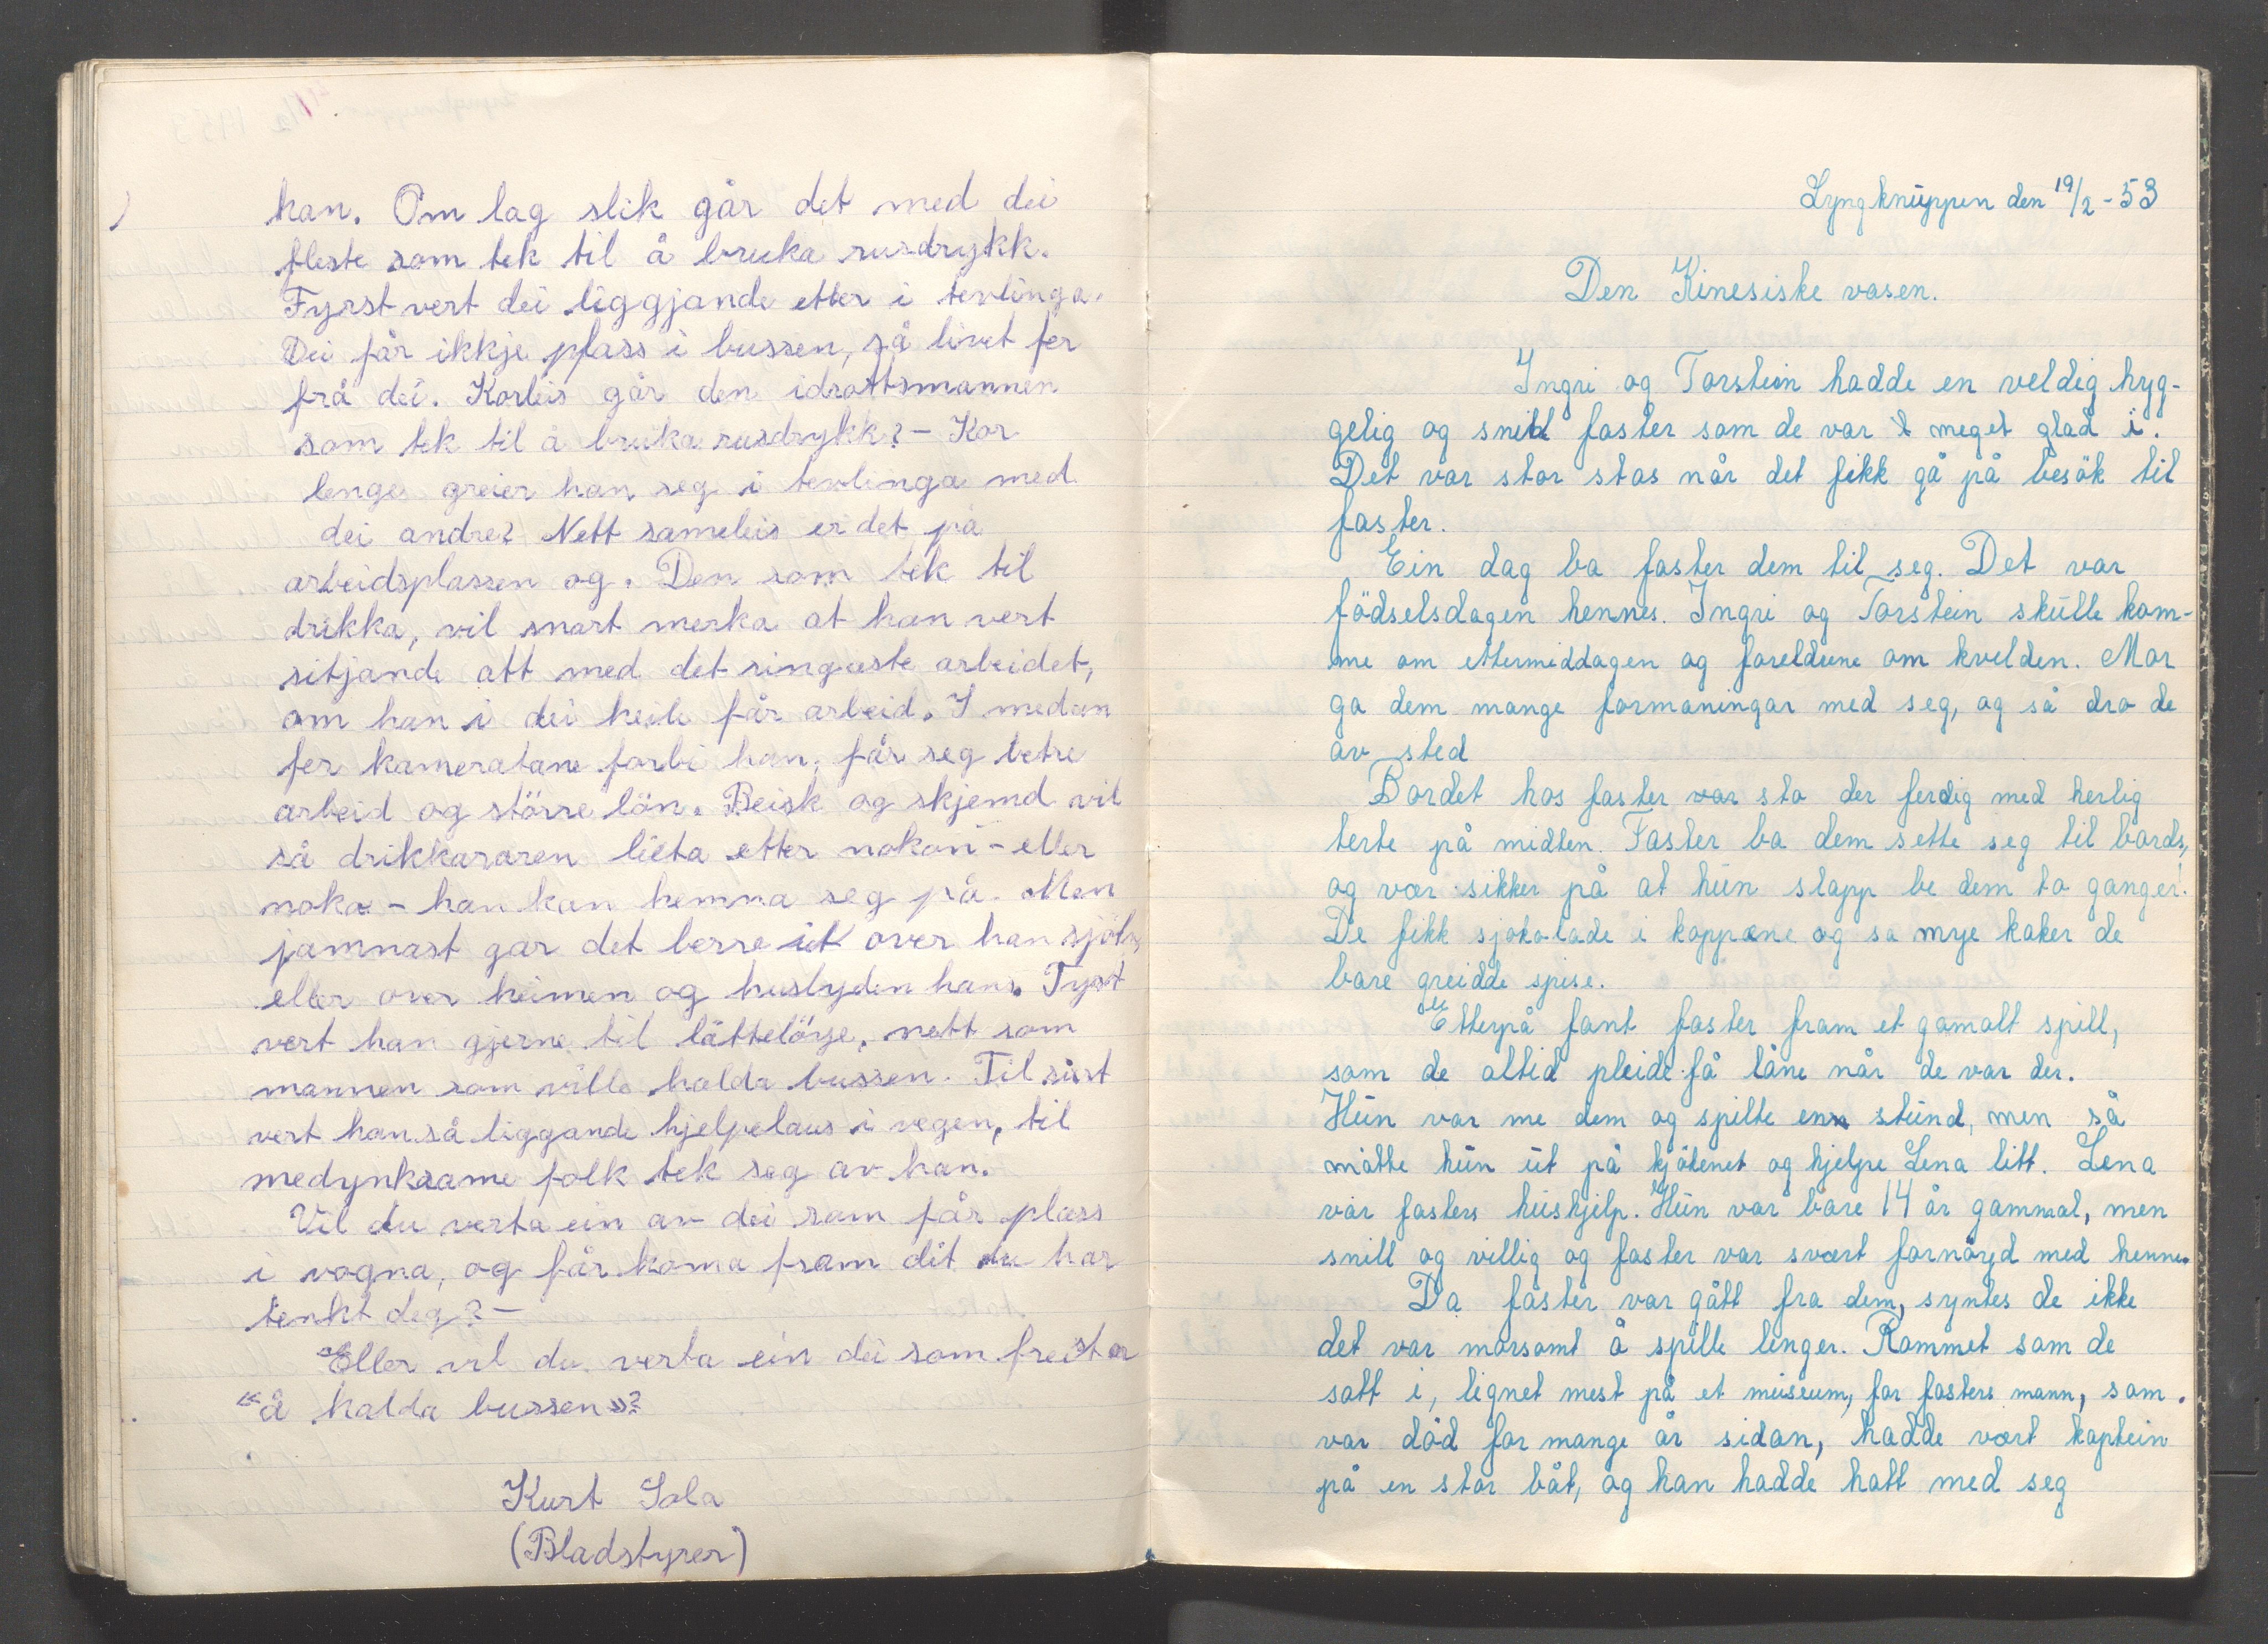 han. Om lag slik går det med dei
fleste som tek til å bruka rusdrykk.
Fyrst vert dei liggjande etter i tevlinga.
Dei får ikkje plass i bussen, så livet fer
frå dei. Korleis går den idrottsmannen
som tek til å bruka rusdrykk? - Kor
lenge greier han seg i tevlinga med
dei andre? Nett sameleis er det på
arbeidsplassen og. Den som tek til
drikka, vil snart merka at han vert
sitjande att med det ringaste arbeidet,
om han i dei heile får arbeid. I medan
fer kameratane forbi han, får seg betre
arbeid og större lön. Beisk og skjemd vil
så drikkararen lieta etter nokon - eller
noka - han kan hemna seg på. Men
jamnast gar det berre ut over han sjölv,
eller over heimen og huslyden hans. Fyrst
vert han gjerne til låttelöye, nett som
mannen som ville halda bussen. Til sist
vert han så liggande hjelpelaus i vegen, til
medynksame folk tek seg av han.
Vil du verta ein av dei som får plass
i vogna, og får koma fram dit du har
tenkt deg? -
Eller vil du verta ein dei som freistar
"å halda bussen"?
Kurt Sola
(Bladstyrer)
Lyngknuppen den 19/2 - 53
Den Kinesiske vasen.
Ingri og Torstein hadde en veldig hyg-
gelig og snill faster som de var meget glad i.
Det var stor stas når det fikk gå på besök til
faster.
Ein dag ba faster dem til seg. Det var
födselsdagen hennes. Ingri og Torstein skulle kom-
me om ettermiddagen og foreldrene om kvelden. Mor
ga dem mange formaningar med seg, og så dro de
av sted
Bordet hos faster var sto der ferdig med herlig
terte på midten. Faster ba dem sette seg til bords,
og vær sikker på at hun slapp be dem to ganger!
De fikk sjokolade i koppene og sa mye kaker de
bare greidde spise.
Etterpå fant faster fram et gamalt spill,
som de altid pleide få låne når de var der.
Hun var me dem og spilte enn stund, men så
måtte hun ut på kjökenet og hjelpe Lena litt. Lena
var fasters hushjelp. Hun var bare 14 år gammal, men
snill og villig og faster var svært fornöyd med henne.
Da faster var gått fra dem, syntes de ikke
det var morsomt å spille lenger. Rommet som de
satt i, lignet mest på et museum, for fasters mann, som
var död for mange år sidan, hadde vært kaptein
på en stor båt, og han hadde hatt med seg